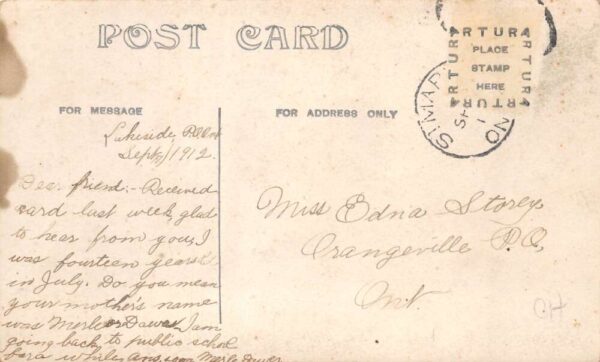 POST CARD
ARTURA
ARTURA
ARTURA
ARTURA
PLACE
STAMP
HERE
ST MAR
SP
1
NO
FOR MESSAGE
FOR ADDRESS ONLY
Lakeside
Sept 1 1912
Dear friend:- Received
card last week, glad
to hear from you, I
was fourteen years
in July. Do you mean
your mother's name
was Merle or Dawes I am
going back to public school
for a while, ans. soon Merle
Miss Edna Storey
Orangeville P.O,
Ont.
OH